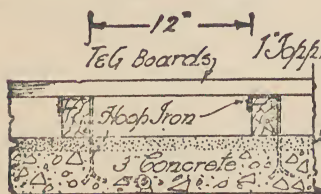 12"
T&G Boards 1" Topp
Hoop Iron
3" Concrete